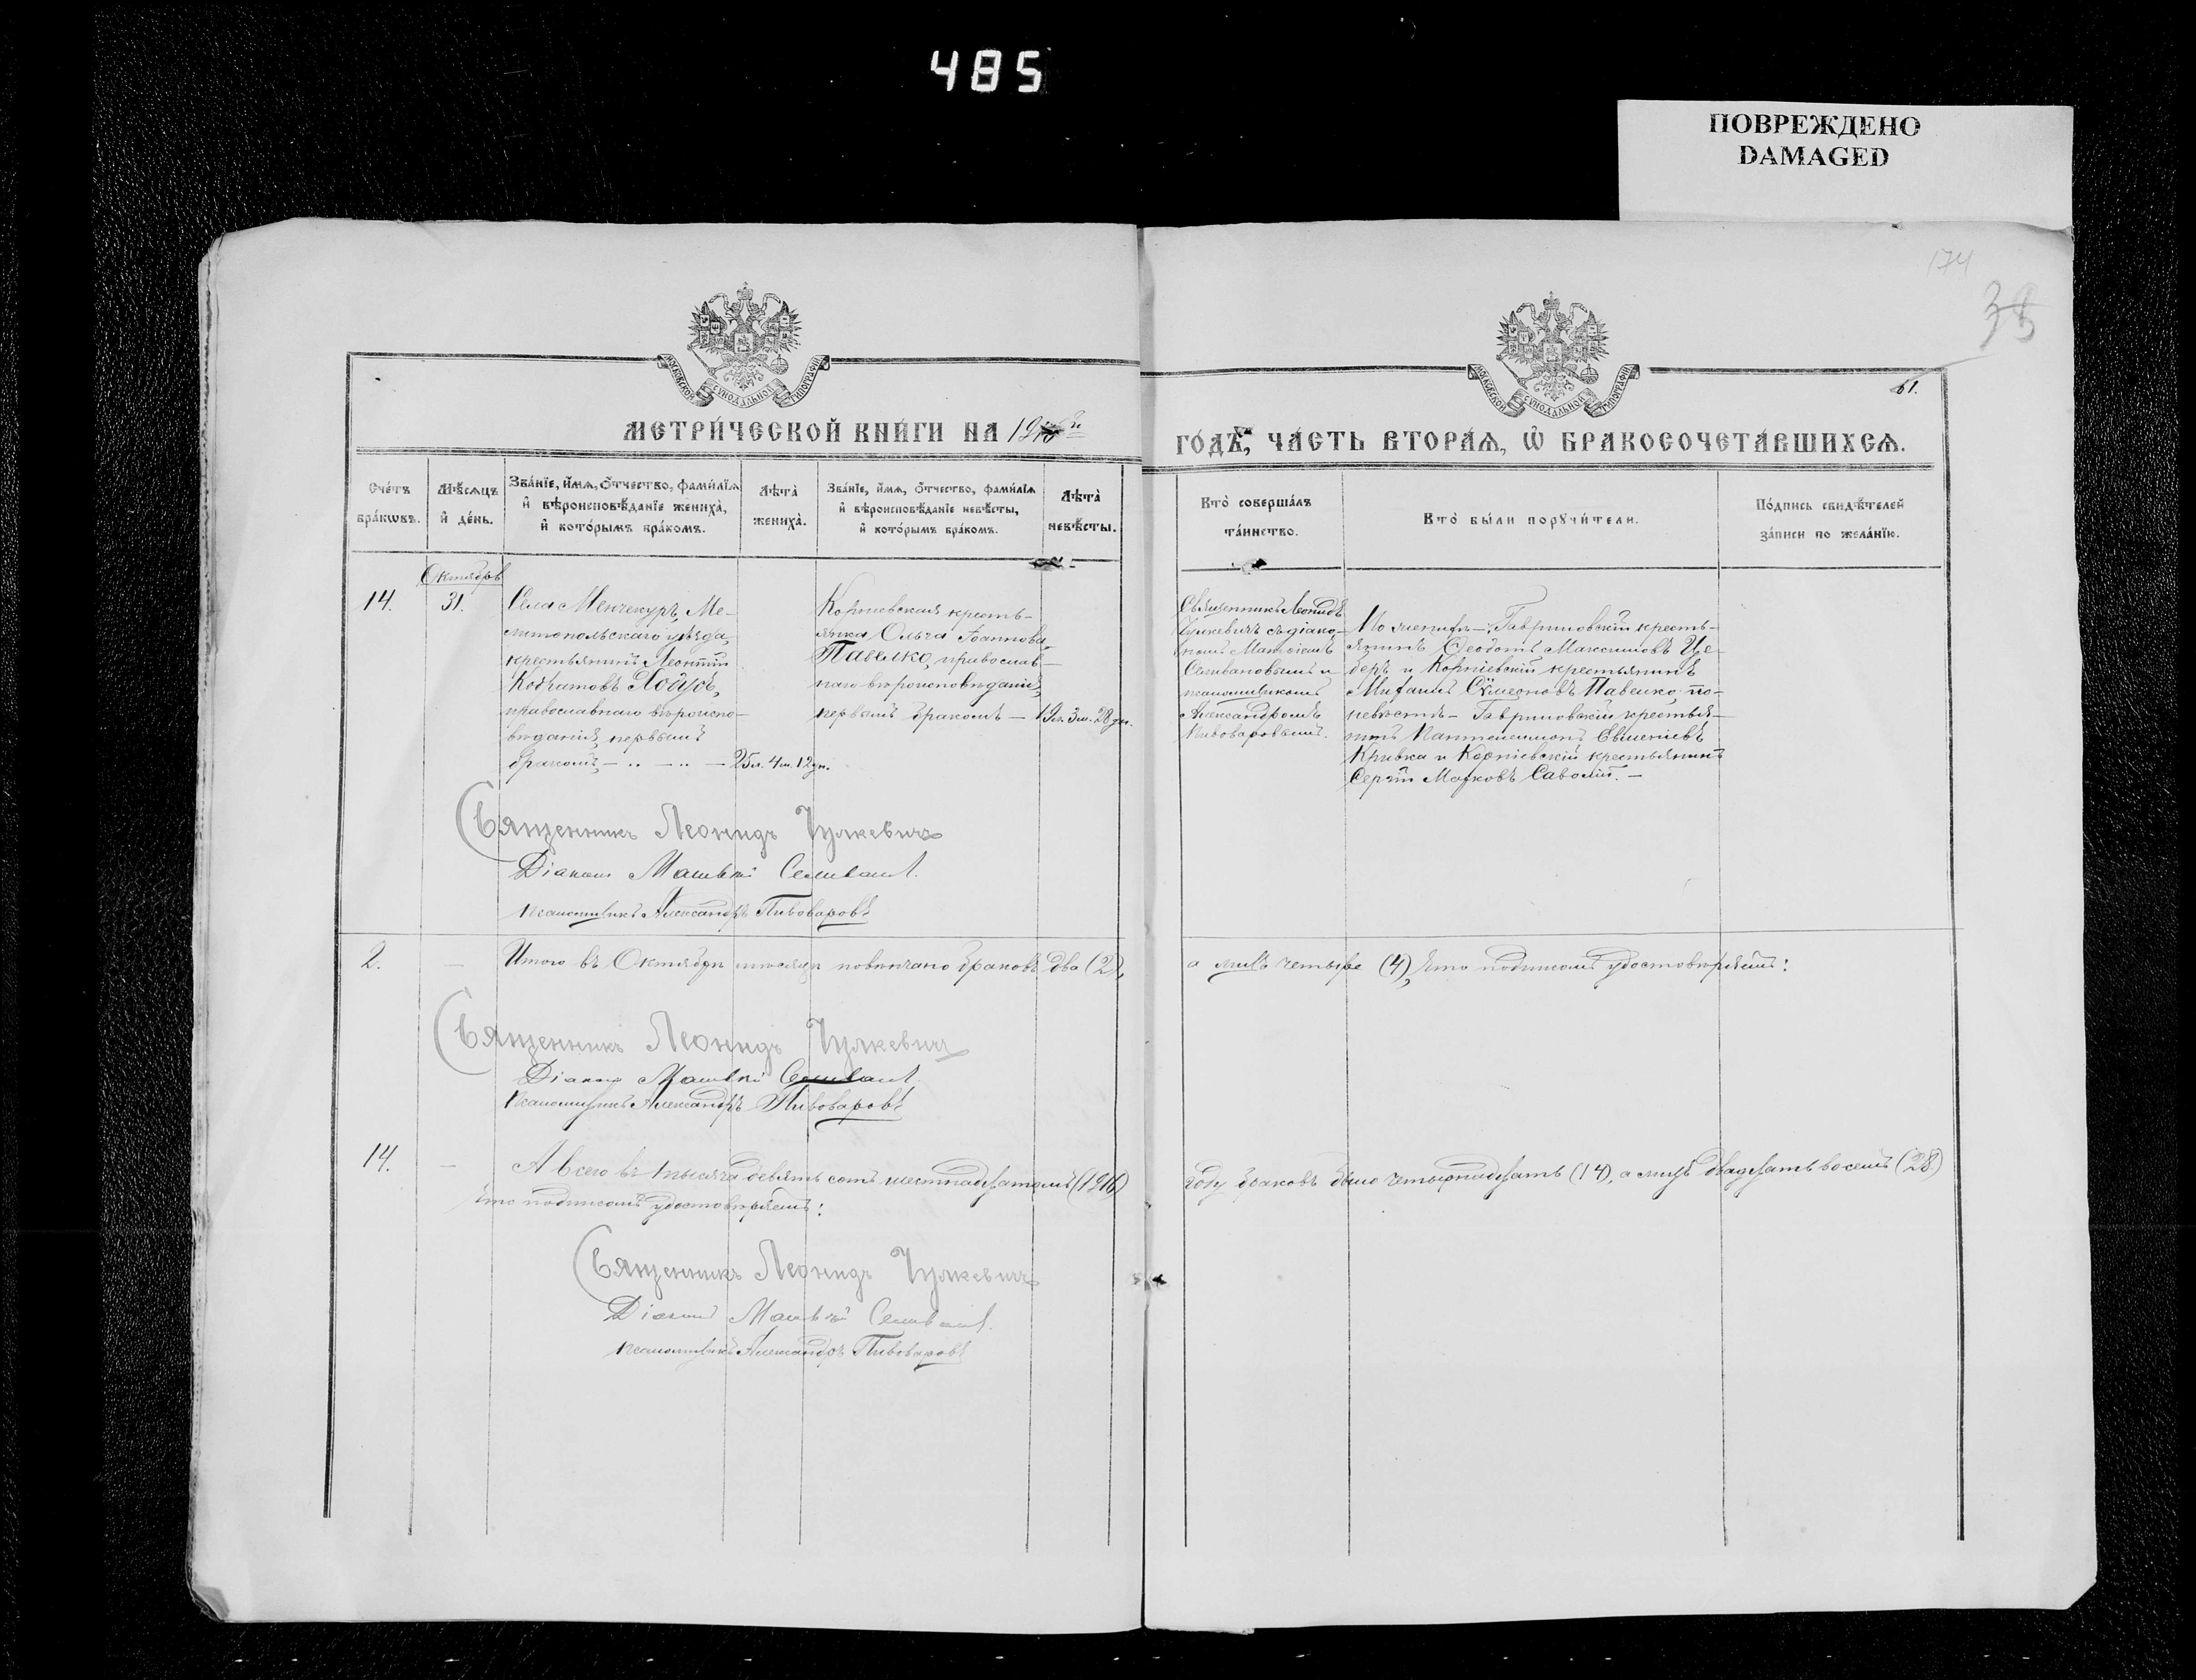 485
ПОВРЕЖДЕНО
DAMAGED
174
61.
МОСКОВСКОЙ СѴНОДАЛЬНОЙ ТИПОГРАФІИ
МОСКОВСКОЙ СѴНОДАЛЬНОЙ ТИПОГРАФІИ
МЕТРИ́ЧЕСКОЙ КНИ́ГИ НА 1916 й
ГО́ДЪ, ЧА́СТЬ ВТОРА́Ѧ, Ѿ БРАКОСОЧЕТА́ВШИХСѦ.
Сче́тъ бра́кѡвъ.
Мѣ́сѧцъ и де́нь.
Зва́нїе, и́мѧ, о́тчество, фами́лїѧ
и вѣроисповѣ́данїе жениха̀,
и кото́рымъ бра́комъ.
Лѣта̀ жениха̀.
Зва́нїе, и́мѧ, о́тчество, фами́лїѧ
и вѣроисповѣ́данїе невѣ́сты,
и кото́рымъ бра́комъ.
Лѣта̀ невѣ́сты.
Кто̀ соверша́лъ
та́инство.
Кто̀ бы́ли порꙋчи́тели.
По́дпись свидѣ́телей
за́писи по жела́нїю.
Октябрь
14.
31.
Села Менчекуръ, Ме-
литопольскаго уѣзда,
крестьянинъ Леонтій
православнаго вѣроиспо-
вѣданія, первымъ
бракомъ, — „ — „ — 25 л. 4 м. 12 дн.
Корніевская кресть-
янка Ольга Іоаннова
Павелко, православ-
наго вѣроисповѣданія,
первымъ бракомъ — 19 л. 3 м. 28 дн.
Священникъ Леонидъ
Чулкевичъ съ діако-
номъ Матвіемъ
Селивановымъ и
псаломщикомъ
Александромъ
Пивоваровымъ.
По женихѣ — Гавриловскій кресть-
янинъ Ѳеодотъ Максимовъ Це-
беръ и Корніевскій крестьянинъ
Симеоновъ Павелко по
невѣстѣ — Гавриловскій крестья-
нинъ Пантелеимонъ
Кривка и Корніевскій крестьянинъ
Сергій Марковъ —
Священникъ Леонидъ Чулкевичъ
Діаконъ Матвѣй Селивановъ.
Псаломщикъ Александръ Пивоваровъ
2.
—
Итого въ Октябрѣ мѣсяцѣ повѣнчано браковъ два (2),
а лицъ четыре (4), что подписомъ удостовѣряемъ:
Священникъ Леонидъ Чулкевичъ
Діаконъ Матвѣй Селивановъ
Псаломщикъ Александръ Пивоваровъ
14.
—
А всего въ тысяча девять сотъ шестнадцатомъ (1916)
году браковъ было четырнадцать (14), а лицъ двадцать восемь (28)
что подписомъ удостовѣряемъ:
Священникъ Леонидъ Чулкевичъ
Діаконъ Матвѣй Селивановъ.
Псаломщикъ Александръ Пивоваровъ